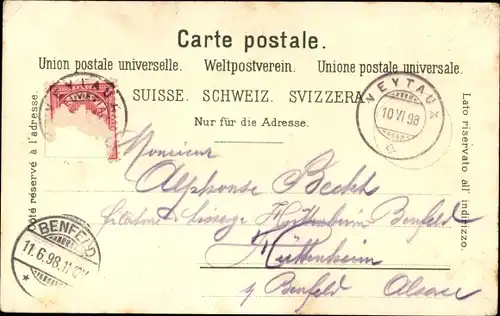 Carte postale.
Union postale universelle. Weltpostverein. Unione postale universale.
SUISSE. SCHWEIZ. SVIZZERA.
Nur für die Adresse.
Côté réservé à l'adresse.
Lato riservato all' indirizzo.
VEYTAUX
VEYTAUX
10 VI 98
BENFELD
11.6.98.11
Monsieur
Alphonse
Huttenheim Benfeld
Hüttenheim
Benfeld Alsace